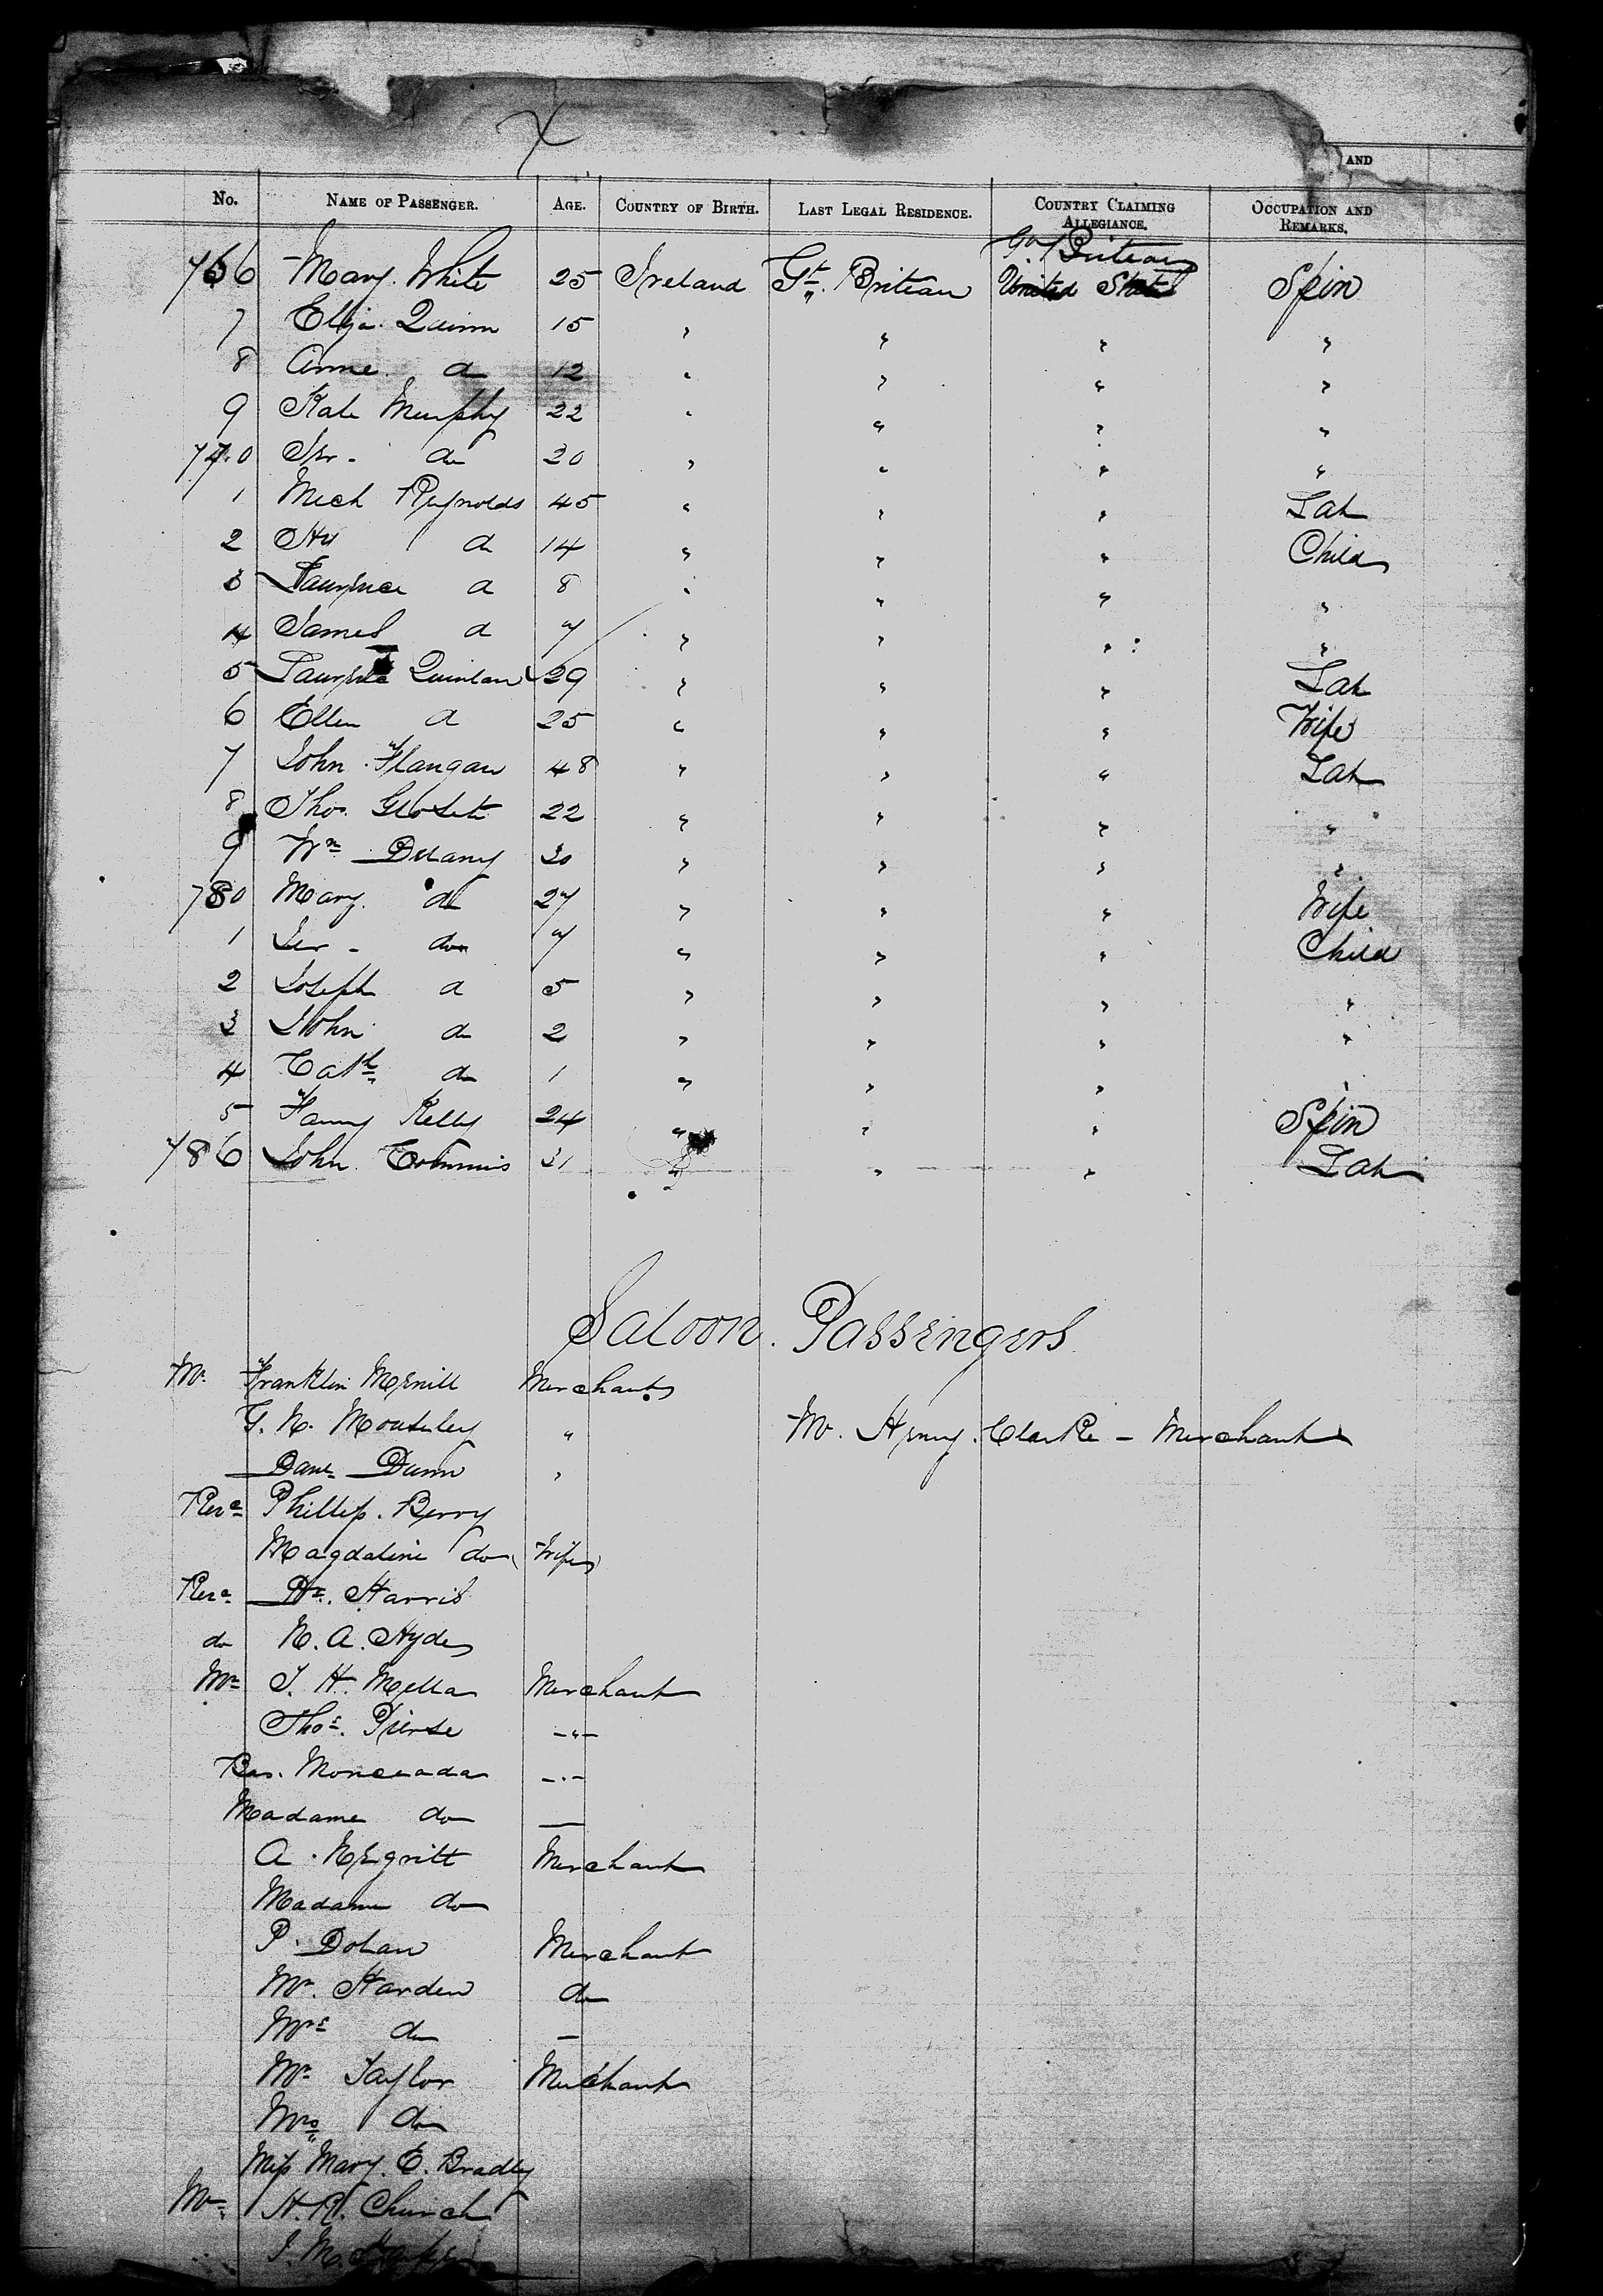 AND
No. NAME OF PASSENGER. AGE. COUNTRY OF BIRTH. LAST LEGAL RESIDENCE. COUNTRY CLAIMING ALLEGIANCE. OCCUPATION AND REMARKS.
Gt Britain
766 Mary White 25 Ireland Gt. Britain United States Spin
7 Eliza Quinn 15 " " " "
8 Anne do 12 " " " "
9 Kate Murphy 22 " " " "
770 do 20 " " " "
1 Mich Reynolds 45 " " " Lab
2 do 14 " " " Child
3 Laurence do 8 " " " "
4 James do 7 " " " "
5 Laurence Quinlan 29 " " " Lab
6 Ellen do 25 " " " Wife
7 John Flangan 48 " " " Lab
8 Thos. 22 " " " "
9 Wm Delany 30 " " " "
780 Mary do 27 " " " Wife
1 do 7 " " " Child
2 Joseph do 5 " " " "
3 John do 2 " " " "
4 Cath do 1 " " " "
5 Fanny Kelly 24 " " " Spin
786 John 31 " " " Lab
Saloon Passengers
Mr. Franklin Merrill Merchant
G. N. Mouseley "
Mr. Henry Clarke - Merchant
Danl Dunn "
Revd Phillip Berry
Magdaline do Wife
Revd Harris
do N. A. Hyde
Mr J. H. Mella Merchant
Thos. Pierse "
Moncada "
Madame do —
A. Merchant
Madame do
P. Dolan Merchant
Mr. Harden do
Mrs do —
Mr Taylor Merchant
Mrs do
Miss Mary E. Bradly
Mr H. R. Church
J. M.